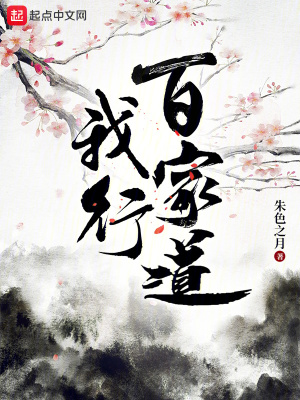 起点中文网
百家道
我行
朱色之月 著